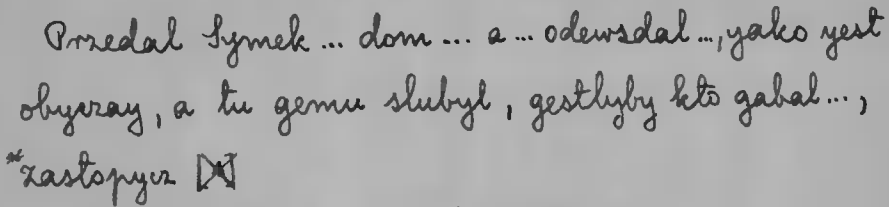 Przedal Symek ... dom ... a ... odewsdal ..., yako yest
obyczay, a tu gemu slubyl, gestlyby kto gabal ...,
*zastopycz